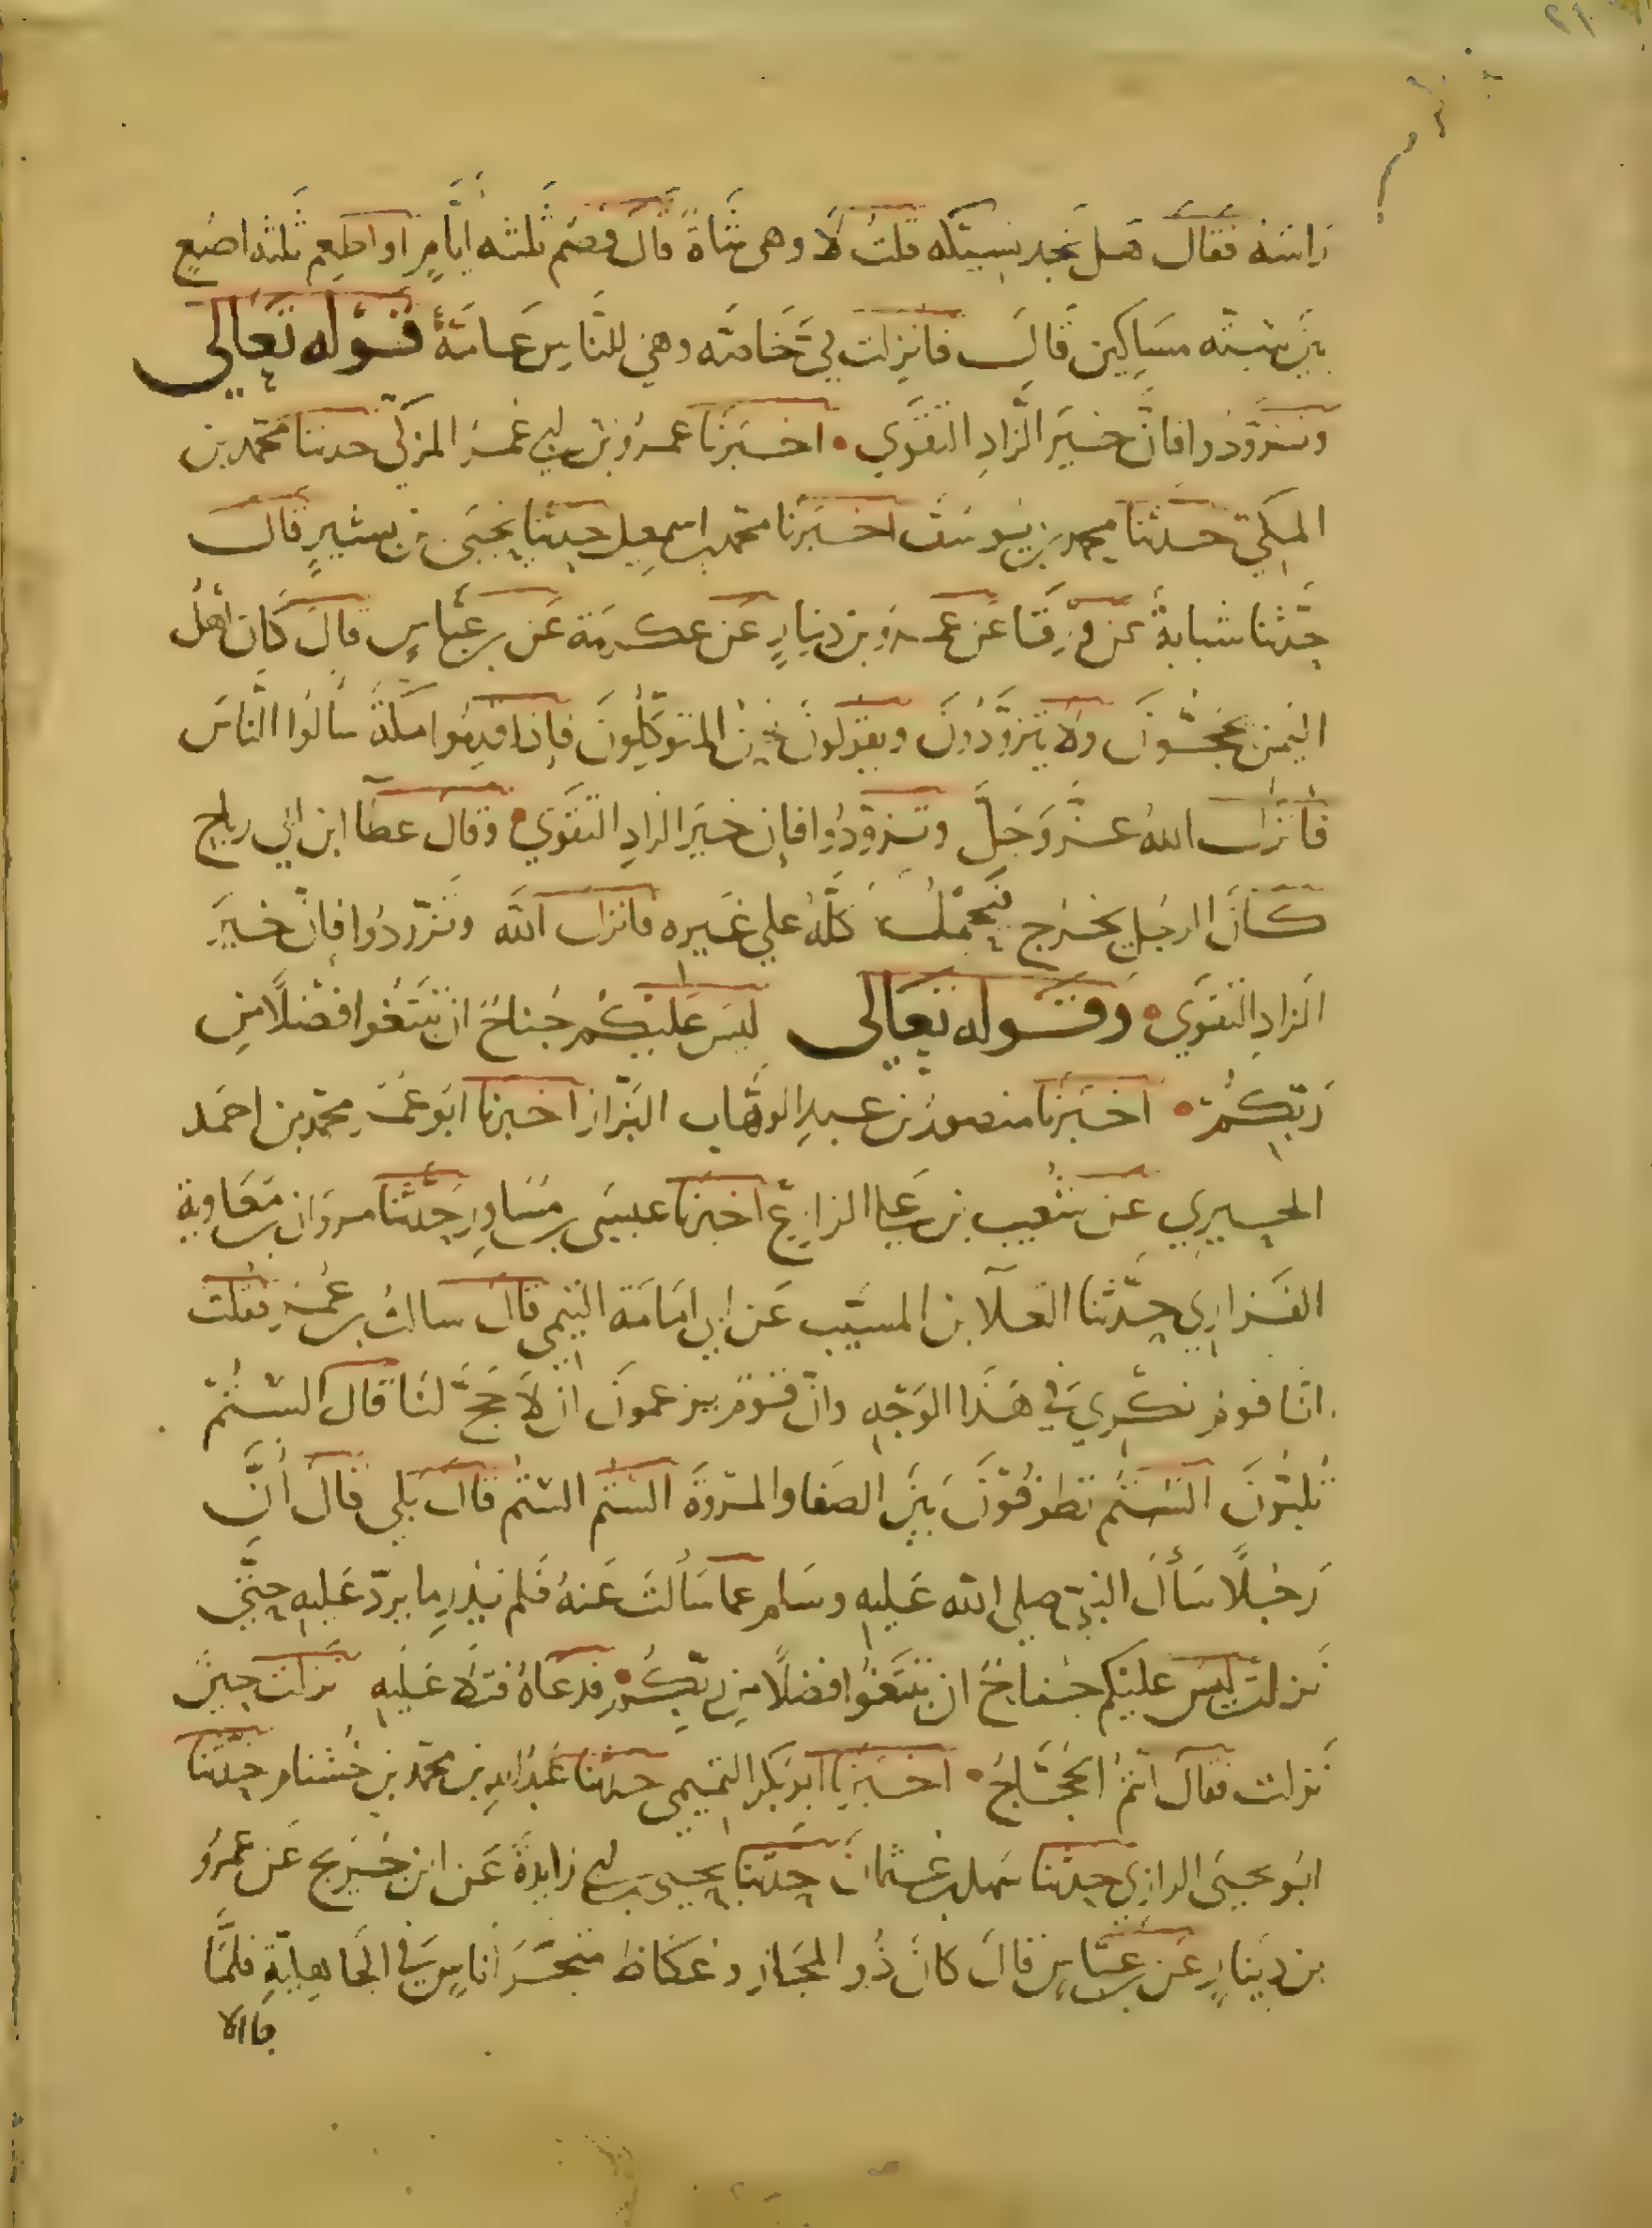 ٢٩
راسه فقال هل تجد نسيكه قلت لا وهي شاة قال فصم ثلثه ايام او اطعم ثلثه اصع
بين سته مساكين قال فانزلت في خاصه وهي للناس عامة قوله تعالى
وتزودوا فان خير الزاد التقوي اخبرنا عمرو بن ابي عمر المزكي حدثنا محمد بن
المكي حدثنا محمد بن يوسف اخبرنا محمد بن اسمعيل حدثنا يحيى بن بشير قال
حدثنا شبابة عن ورقا عن عمرو بن دينار عن عكرمة عن بن عباس قال كان اهل
اليمن يحجون ولا يتزودون ويقولون نحن المتوكلون فاذا قدموا مكة سالوا الناس
فانزل الله عز وجل وتزودوا فان خير الزاد التقوي وقال عطا ابن ابي رباح
كان الرجل يخرج فيحمل كله علي غيره فانزل الله وتزودوا فان خير
الزاد التقوي وقوله تعالى ليس عليكم جناح ان تبتغوا فضلا من
ربكم اخبرنا منصور بن عبد الوهاب البزاز اخبرنا ابو عمر محمد بن احمد
الحيري عن شعيب بن علي الزارع اخبرنا عيسى بن مساور حدثنا مروان بن معاوية
الفزاري حدثنا العلا بن المسيب عن ابي امامة التيمي قال سالت بن عمر فقلت
انا قوم نكري في هذا الوجه وان قوم يزعمون ان لا حج لنا قال الستم
تلبون الستم تطوفون بين الصفا والمروة الستم الستم قال بلي قال ان
رجلا سأل النبي صلي الله عليه وسلم عما سألت عنه فلم يدر ما يرد عليه حتى
نزلت ليس عليكم جناح ان تبتغوا فضلا من ربكم فدعاه فتلا عليه نزلت حين
نزلت فقال انتم الحجاج اخبرنا ابو بكر التميمي حدثنا عبد الله بن محمد بن خشنام حدثنا
ابو يحيى الرازي حدثنا سهل بن عثمان حدثنا يحيى بن ابي زايدة عن ابن جريج عن عمرو
بن دينار عن بن عباس قال كان ذو المجاز وعكاظ متجر اناس في الجاهلية فلما
جا الا